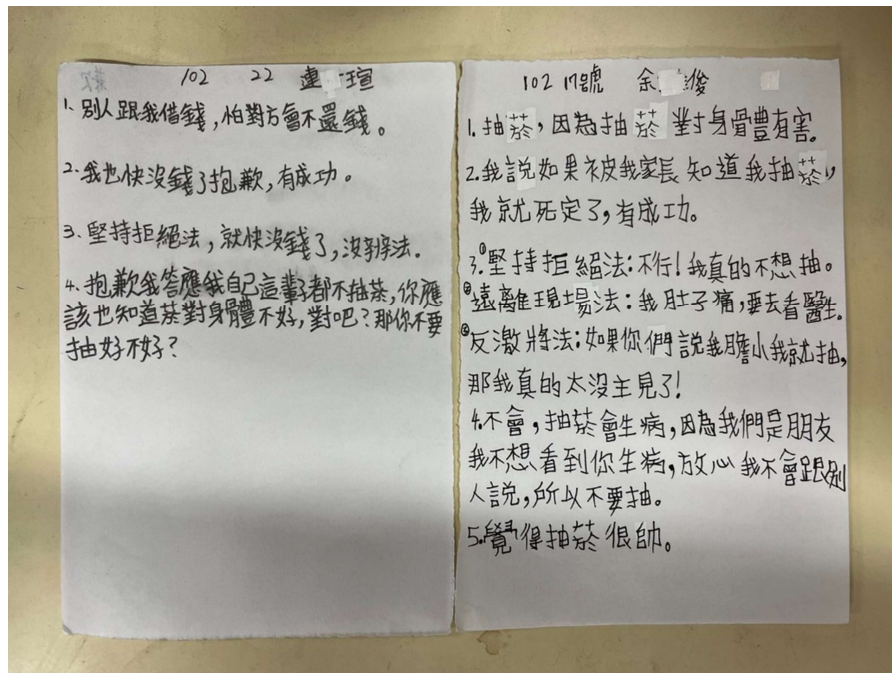 102 22 連 瑄
1. 別人跟我借錢,怕對方會不還錢。
2. 我也快沒錢了抱歉,有成功。
3. 堅持拒絕法,就快沒錢了,沒辦法.
4. 抱歉我答應我自己這輩子都不抽菸,你應
該也知道菸對身體不好,對吧?那你不要
抽好不好?
102 17號 余 俊
1. 抽菸,因為抽菸對身體有害。
2. 我說如果被我家長知道我抽菸,
我就死定了,有成功。
3. ①堅持拒絕法:不行!我真的不想抽。
②遠離現場法:我肚子痛,要去看醫生。
③反激將法:如果你們說我膽小我就抽,
那我真的太沒主見了!
4. 不會,抽菸會生病,因為我們是朋友
我不想看到你生病,放心我不會跟別
人說,所以不要抽。
5. 覺得抽菸很帥。